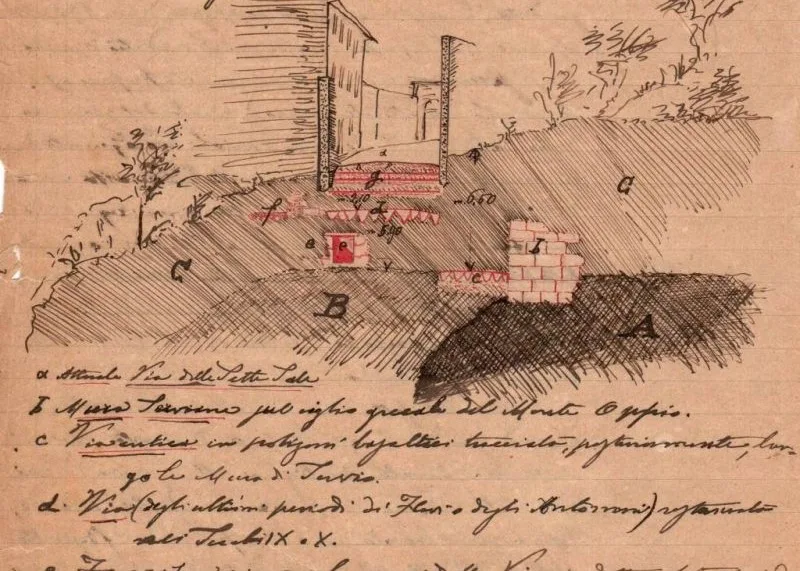 a
g
- 2,10
d
- 6,60
f
- 5,90
a
e
c
I
G
C
B
A
a Attuale Via delle Sette Sale
b Mura Serviane sul ciglio greale del Monte Oppio.
c Via antica in poligoni basaltici tracciata, posteriormente, lun-
go le Mura di Servio.
d. Via (degli ultimi periodi dei Flavi o degli Antonini) restaurata
nei Secoli IX o X.